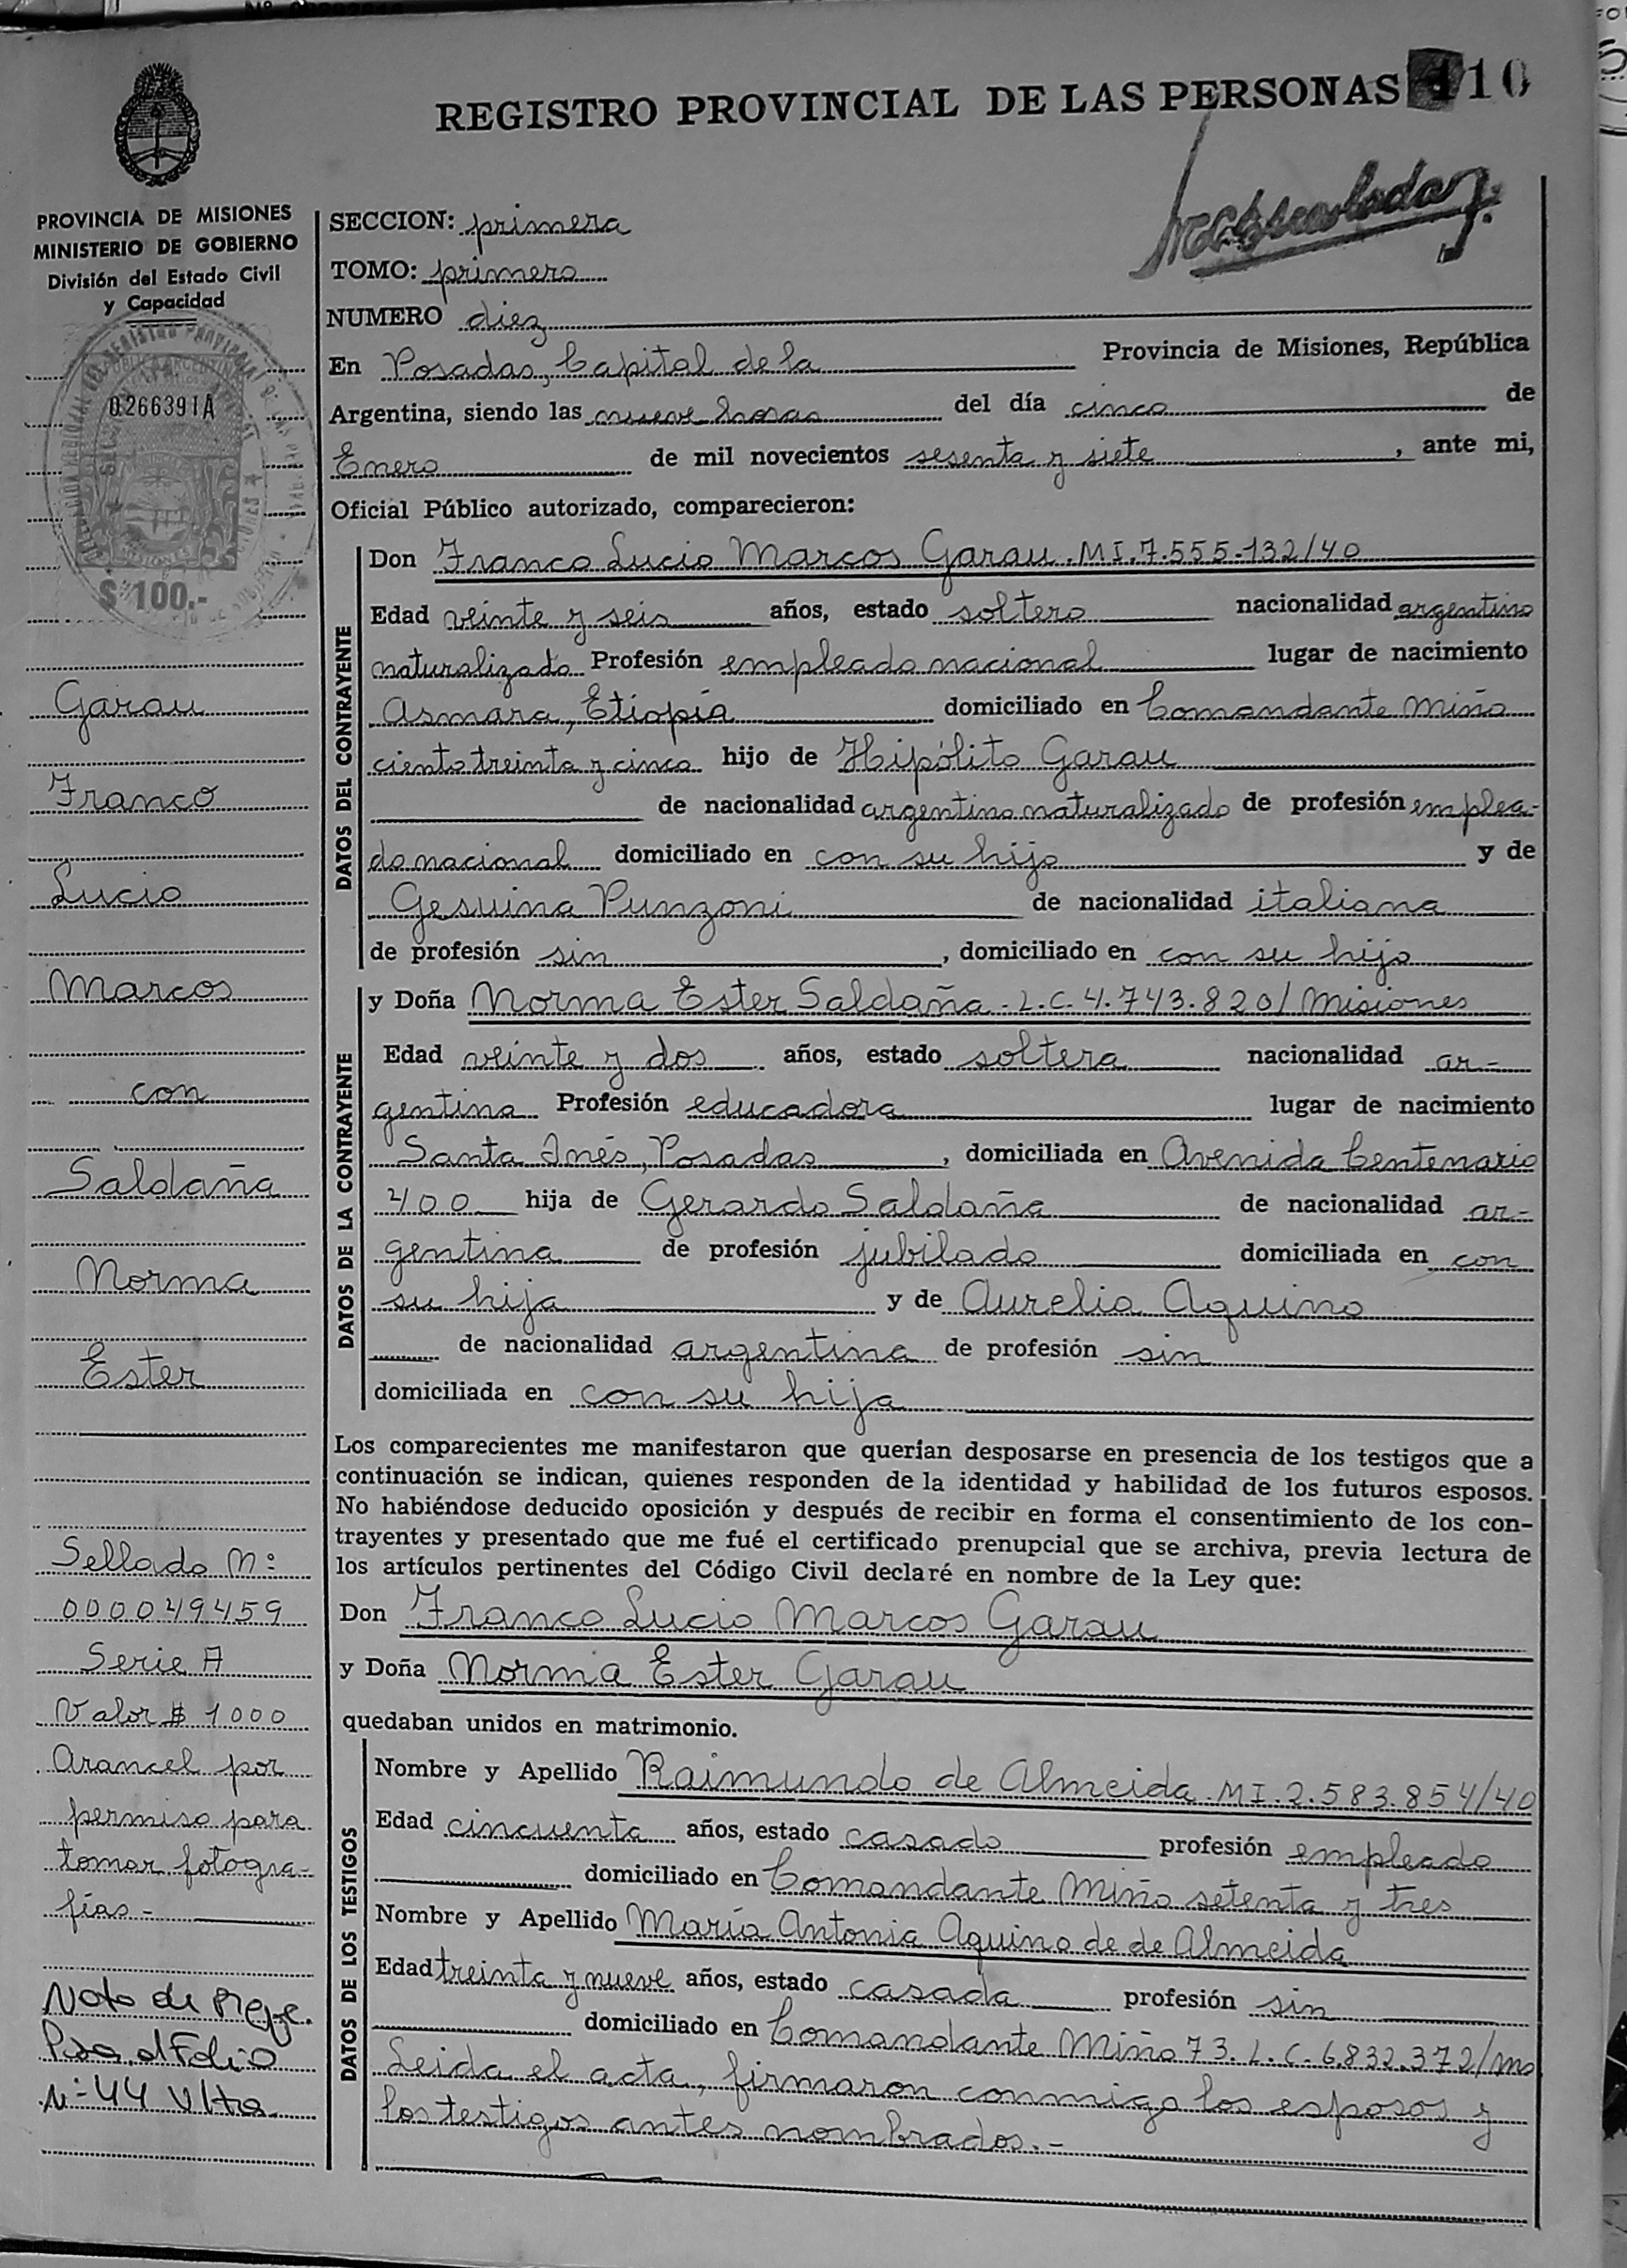 REGISTRO PROVINCIAL DE LAS PERSONAS 110
PROVINCIA DE MISIONES
MINISTERIO DE GOBIERNO
División del Estado Civil
y Capacidad
0266391A
$ 100.-
Garau
Franco
Lucio
Marcos
con
Saldaña
Norma
Ester
Sellado Nº:
000049459
Serie A
Valor $ 1000
Arancel por
permiso para
tomar fotogra-
fías.-
Nota de Refe.
Pasa al Folio
Nº 44 Vlta
SECCION: primera
TOMO: primero
NUMERO diez
En Posadas, Capital de la Provincia de Misiones, República
Argentina, siendo las nueve horas del día cinco de
Enero de mil novecientos sesenta y siete, ante mi,
Oficial Público autorizado, comparecieron:
DATOS DEL CONTRAYENTE
Don Franco Lucio Marcos Garau. MI. 7.555.132/40
Edad veinte y seis años, estado soltero nacionalidad argentino
naturalizado Profesión empleado nacional lugar de nacimiento
Asmara, Etiopía domiciliado en Comandante Miño
ciento treinta y cinco hijo de Hipólito Garau
de nacionalidad argentino naturalizado de profesión emplea-
do nacional domiciliado en con su hijo y de
Gesuina Punzoni de nacionalidad italiana
de profesión sin, domiciliado en con su hijo
DATOS DE LA CONTRAYENTE
y Doña Norma Ester Saldaña. L.C. 4.743.820/Misiones
Edad veinte y dos años, estado soltera nacionalidad ar-
gentina Profesión educadora lugar de nacimiento
Santa Inés, Posadas, domiciliada en Avenida Centenario
400 hija de Gerardo Saldaña de nacionalidad ar-
gentina de profesión jubilado domiciliada en con
su hija y de Aurelia Aquino
de nacionalidad argentina de profesión sin
domiciliada en con su hija
Los comparecientes me manifestaron que querían desposarse en presencia de los testigos que a
continuación se indican, quienes responden de la identidad y habilidad de los futuros esposos.
No habiéndose deducido oposición y después de recibir en forma el consentimiento de los con-
trayentes y presentado que me fué el certificado prenupcial que se archiva, previa lectura de
los artículos pertinentes del Código Civil declaré en nombre de la Ley que:
Don Franco Lucio Marcos Garau
y Doña Norma Ester Garau
quedaban unidos en matrimonio.
DATOS DE LOS TESTIGOS
Nombre y Apellido Raimundo de Almeida. MI. 2.583.854/40
Edad cincuenta años, estado casado profesión empleado
domiciliado en Comandante Miño setenta y tres
Nombre y Apellido María Antonia Aquino de de Almeida
Edad treinta y nueve años, estado casada profesión sin
domiciliado en Comandante Miño 73. L.C. 6.832.372/Ms
Leida el acta, firmaron conmigo los esposos y
los testigos antes nombrados.-